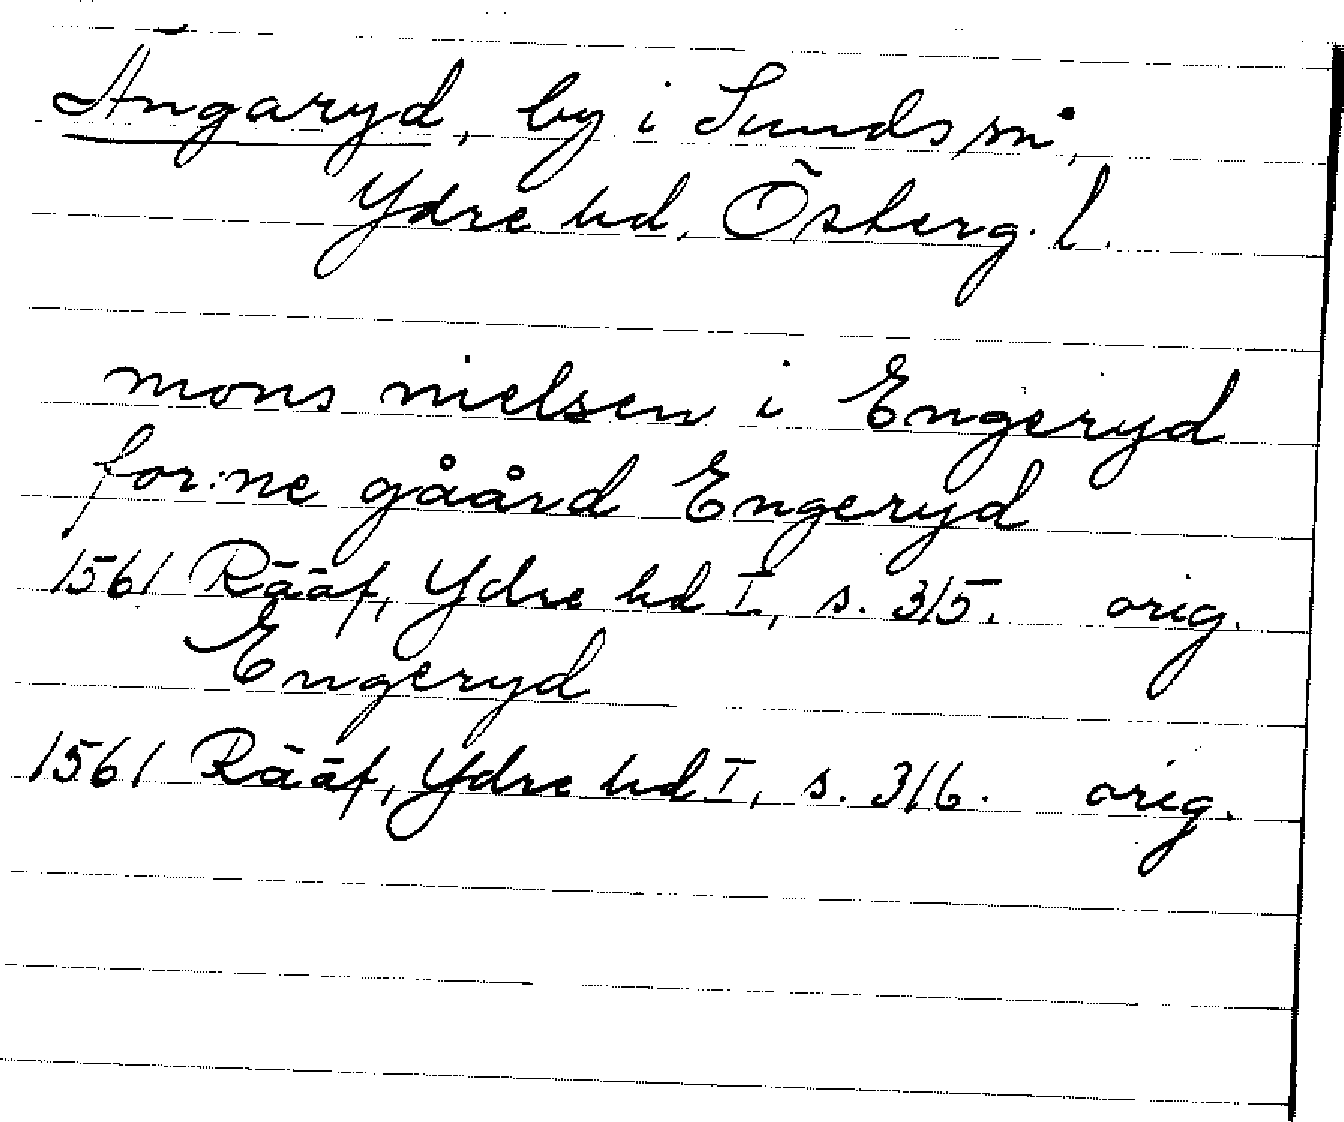 Ängaryd, by i Sunds sn,
Ydre hd, Österg. l.
mons nielsen i Engeryd
for:ne gåård Engeryd
1561 Rääf, Ydre hd I, s. 315. orig.
Engeryd
1561 Rääf, Ydre hd I, s. 316. orig.